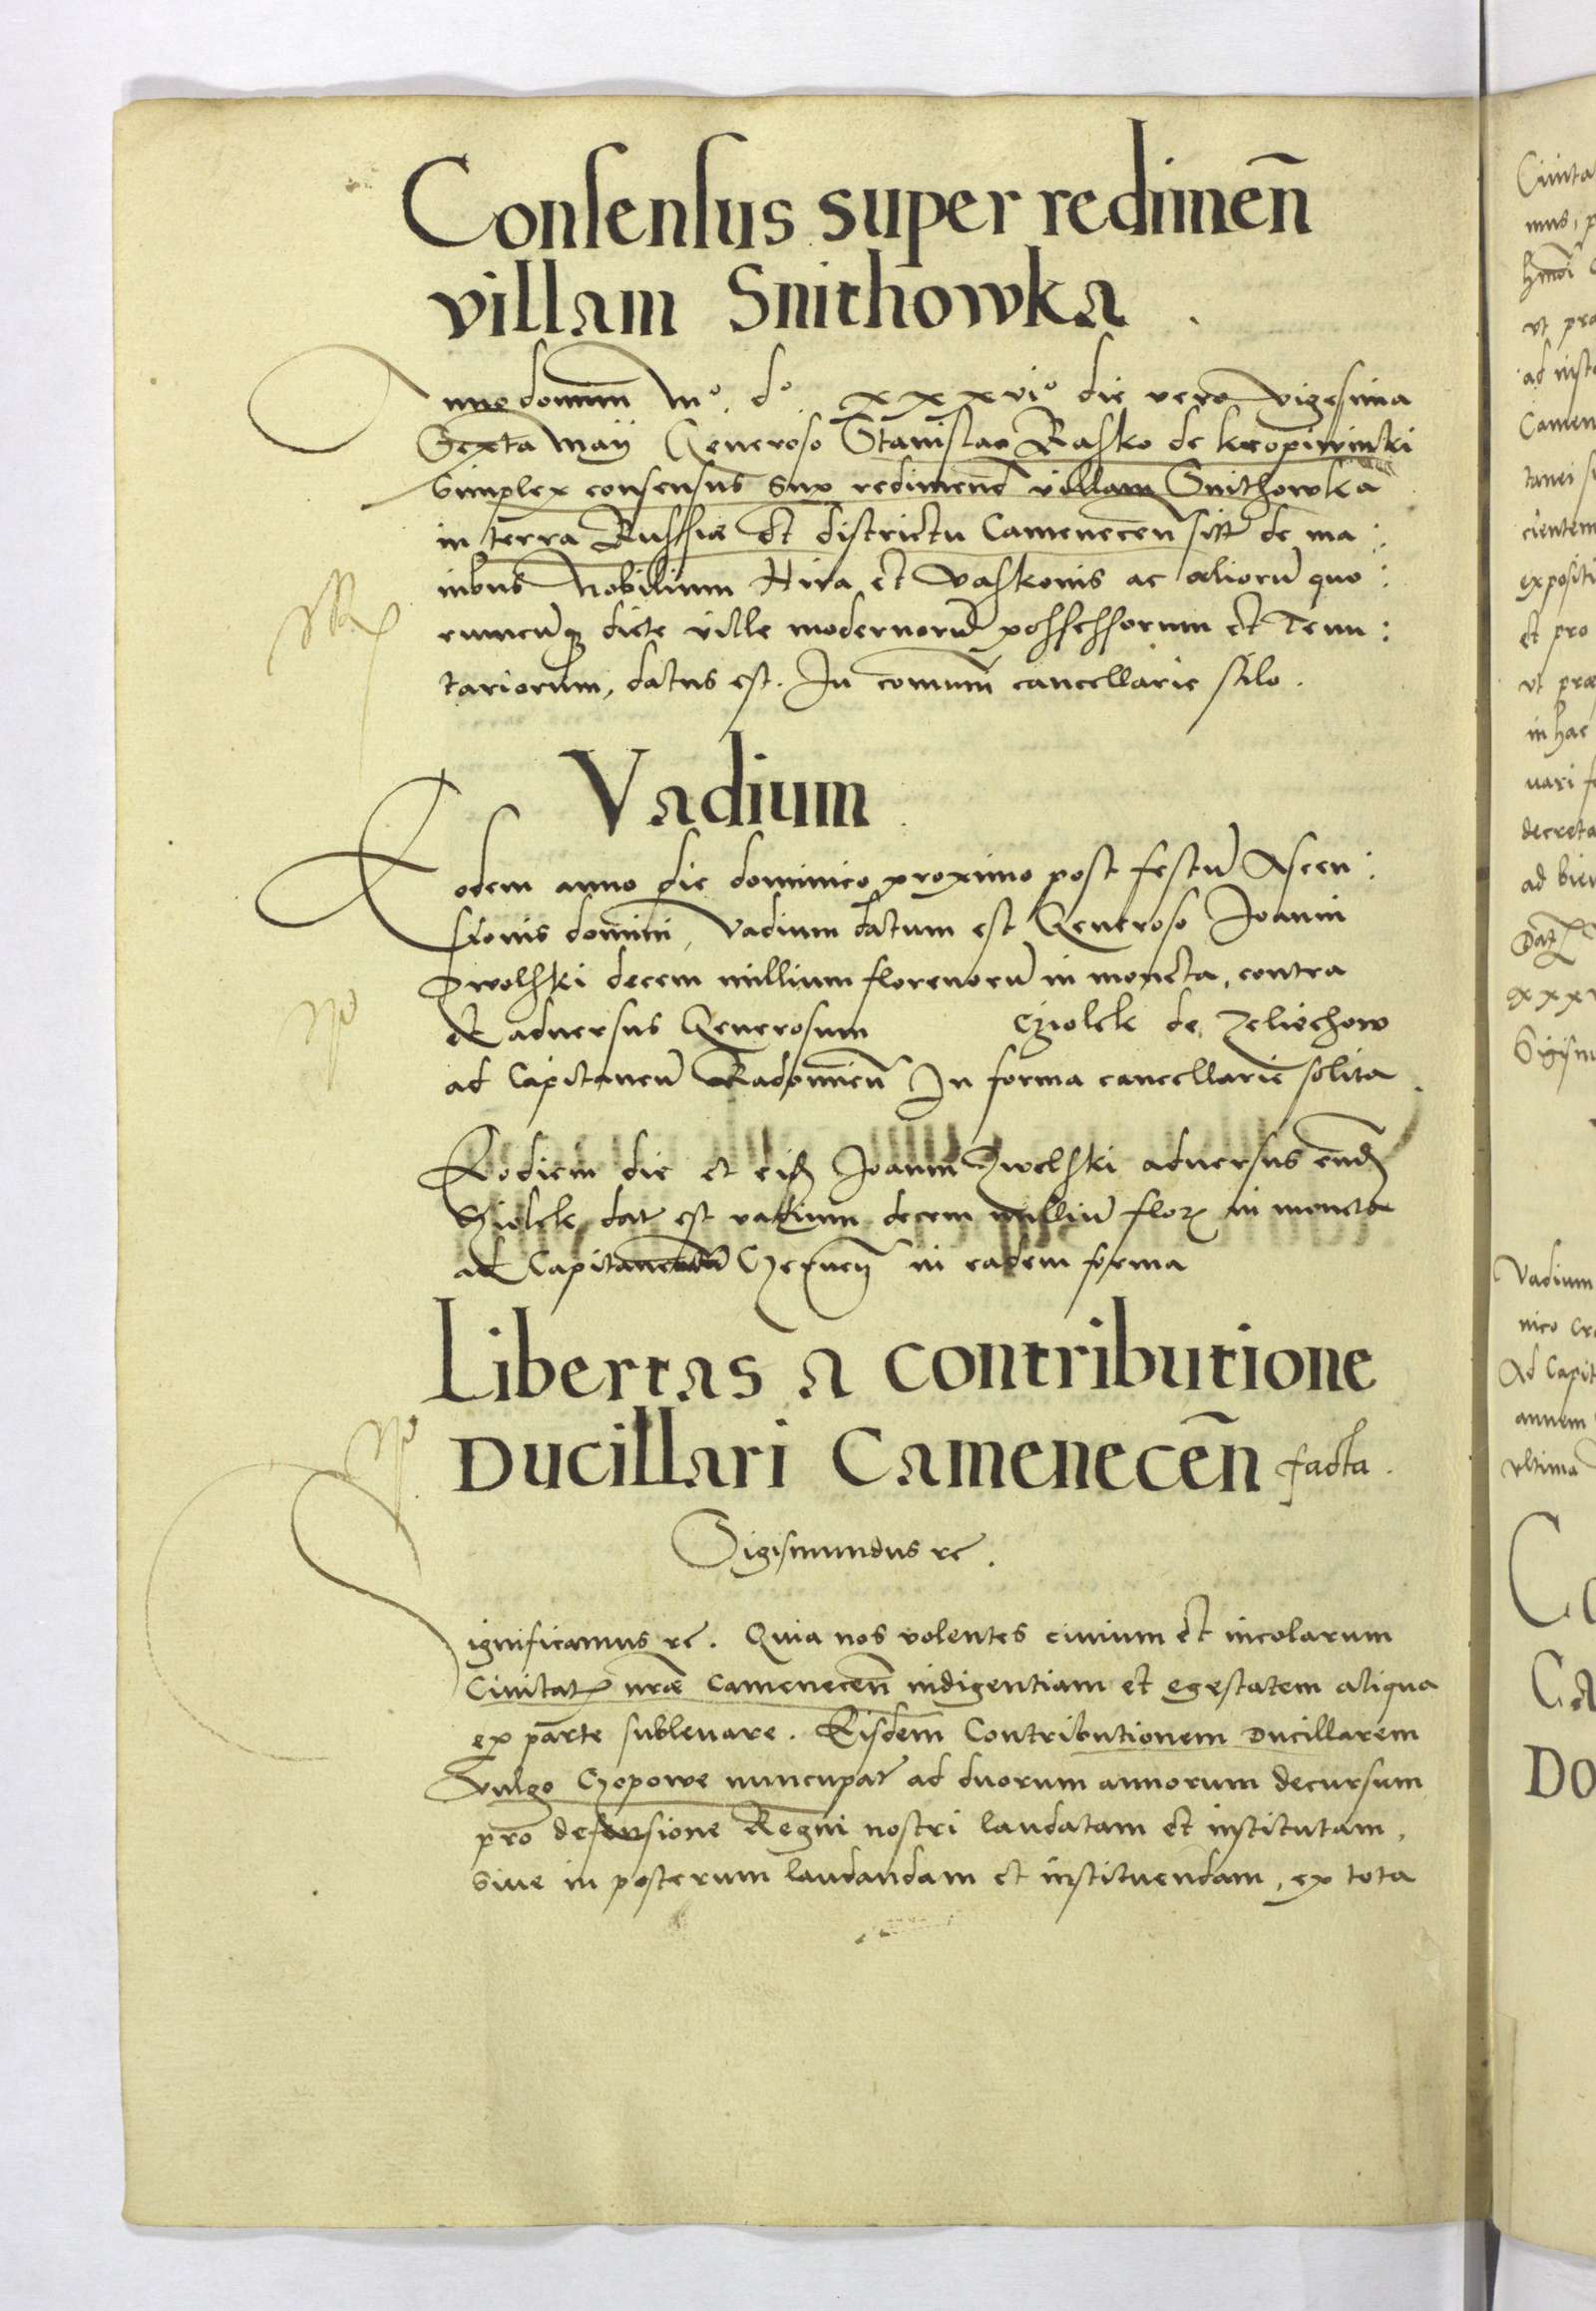 Consensus super redimen̄
villam Snithowka
Anno domini mᵒ dᵒ xxxviᵒ die vero vigesima
Sexta maij Generoso Stanislao Rasko de kropiwinski
Simplex consensus sup redimend villam Snithowka
in terra Russiæ et districtu Camenecen̄ sitt de ma :
nibus Nobilium Hira et Vaskonis ac aliorū quo :
rumcūq dicte ville modernorū possessorum et Tenu :
tariorum, datus est. In comum̄ cancellarie stilo .
Vadium
Eodem anno die dominico proximo post festū Ascen :
sionis domini, Vadium datum est Generoso Joanni
Zwolski decem millium florenorū in moneta, contra
et adversus Generosum Cziolek de Zeliechow
ad Capitaneū Radomien̄ In forma cancellarie solita
Eodiem die et eidē Joanni Zwolski adversus eund
Cziolek dat est vadium decem milliū flor in moneta
ad Capitaneum in eadem forma
Libertas a contributione
Ducillari Camenecen̄ facta .
Sigismundus rc .
Significamus rc . Quia nos volentes civium et incolarum
Civitat nræ Camenecen̄ indigentiam et egestatem aliqua
ex parte sublevare . Eisdem Contributionem Ducillarem
Vulgo Czopowe nuncupat ad duorum annorum decursum
pro defensione Regni nostri laudatam et institutam,
Sive in posterum laudandam et instituendam, ex tota